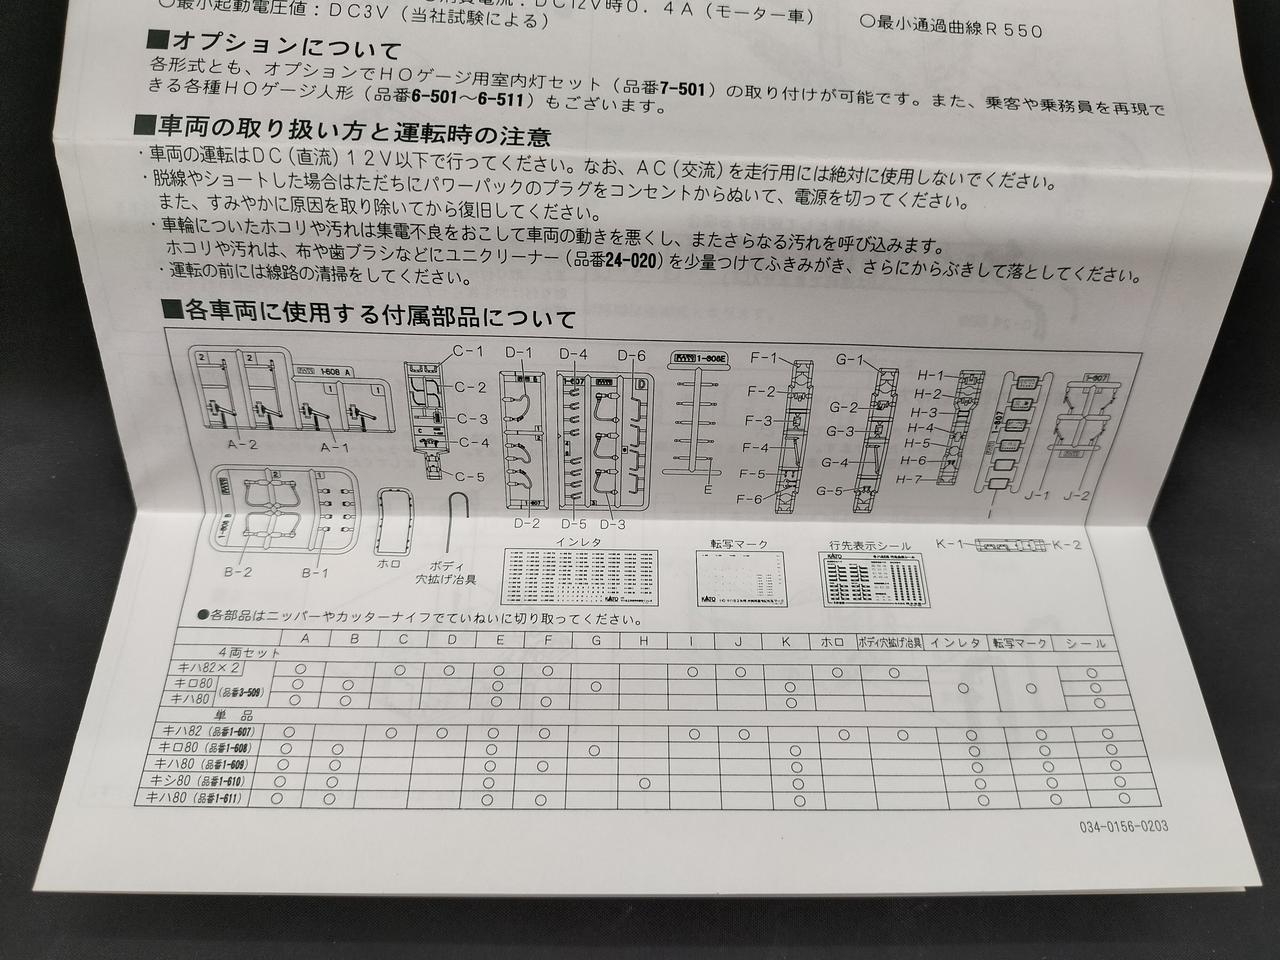 ○最小起動電圧値：DC3V（当社試験による）
消費電流：DC12V時0.4A（モーター車）
○最小通過曲線R550
■オプションについて
各形式とも、オプションでHOゲージ用室内灯セット（品番7-501）の取り付けが可能です。また、乗客や乗務員を再現で
きる各種HOゲージ人形（品番6-501～6-511）もございます。
■車両の取り扱い方と運転時の注意
・車両の運転はDC（直流）12V以下で行ってください。なお、AC（交流）を走行用には絶対に使用しないでください。
・脱線やショートした場合はただちにパワーパックのプラグをコンセントからぬいて、電源を切ってください。
また、すみやかに原因を取り除いてから復旧してください。
・車輪についたホコリや汚れは集電不良をおこして車両の動きを悪くし、またさらなる汚れを呼び込みます。
ホコリや汚れは、布や歯ブラシなどにユニクリーナー（品番24-020）を少量つけてふきみがき、さらにからぶきして落としてください。
・運転の前には線路の清掃をしてください。
■各車両に使用する付属部品について
2 2 1-608 A 1 1
A-2 A-1
C-1
C-2
C-3
C-4
C-5
D-1 D-4 D-6
1-607 D
D-2 D-5 D-3
1-608E
E
F-1
F-2
F-3
F-4
F-5
F-6
G-1
G-2
G-3
G-4
G-5
H-1
H-2
H-3
H-4
H-5
H-6
H-7
1-607
J-1 J-2
1-608 B 2 1
B-2 B-1
ホロ
ボディ
穴拡げ冶具
インレタ
転写マーク
行先表示シール
KATO
K-1 K-2
●各部品はニッパーやカッターナイフでていねいに切り取ってください。
A B C D E F G H I J K ホロ ボディ穴拡げ冶具 インレタ 転写マーク シール
4両セット
キハ82×2 ○ ○ ○ ○ ○ ○ ○ ○ ○ ○
キロ80 （品番3-509） ○ ○ ○ ○ ○ ○ ○ ○
キハ80 ○ ○ ○ ○ ○ ○
単品
キハ82（品番1-607） ○ ○ ○ ○ ○ ○ ○ ○ ○ ○ ○ ○
キロ80（品番1-608） ○ ○ ○ ○ ○ ○ ○ ○
キハ80（品番1-609） ○ ○ ○ ○ ○ ○ ○ ○
キシ80（品番1-610） ○ ○ ○ ○ ○ ○ ○ ○
キハ80（品番1-611） ○ ○ ○ ○ ○ ○ ○ ○
034-0156-0203